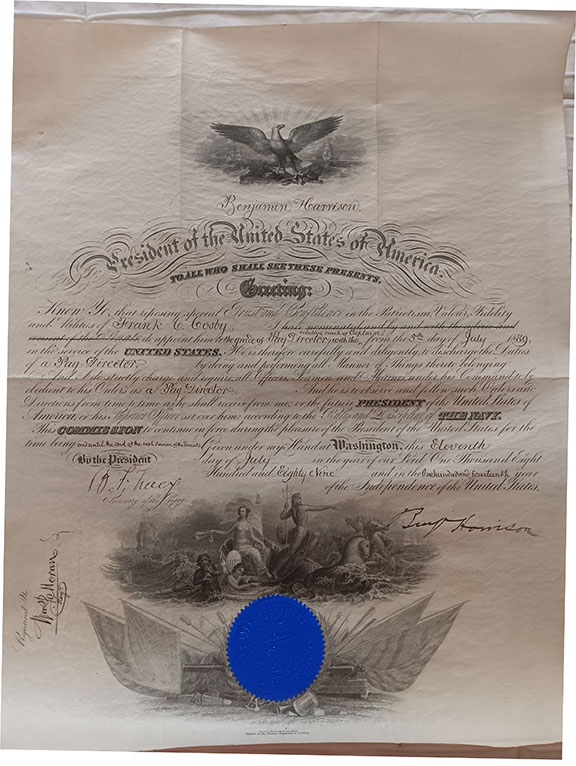 Benjamin Harrison.
President of the United States of America.
TO ALL WHO SHALL SEE THESE PRESENTS,
Greeting:
Know Ye, that reposing special Trust and Confidence in the Patriotism, Valor, Fidelity
and Abilities of Frank C. Cosby, I have nominated and by and with the advice and
consent of the Senate do appoint him to the grade of Pay Director, with the relative rank of Captain, from the 5th day of July 1889,
in the service of the UNITED STATES. He is therefore carefully and diligently to discharge the Duties
of a Pay Director by doing and performing all Manner of Things thereto belonging.
And I do strictly charge and require all Officers, Seamen and Marines under his Command to be
obedient to his Orders as a Pay Director And he is to observe and follow such Orders and
Directions from time to time as he shall receive from me, or the future PRESIDENT of the United States of
America, or his Superior Officer set over him, according to the Rules and Discipline of THE NAVY.
This COMMISSION to continue in force during the pleasure of the President of the United States, for the
time being and until the end of the next Session of the Senate. Given under my Hand at Washington, this Eleventh
day of July in the year of our Lord One Thousand Eight
By the President
Hundred and Eighty Nine and in the One hundred and fourteenth year
of the Independence of the United States.
B. F. Tracy
Secretary of the Navy.
Benj Harrison
Registered No.